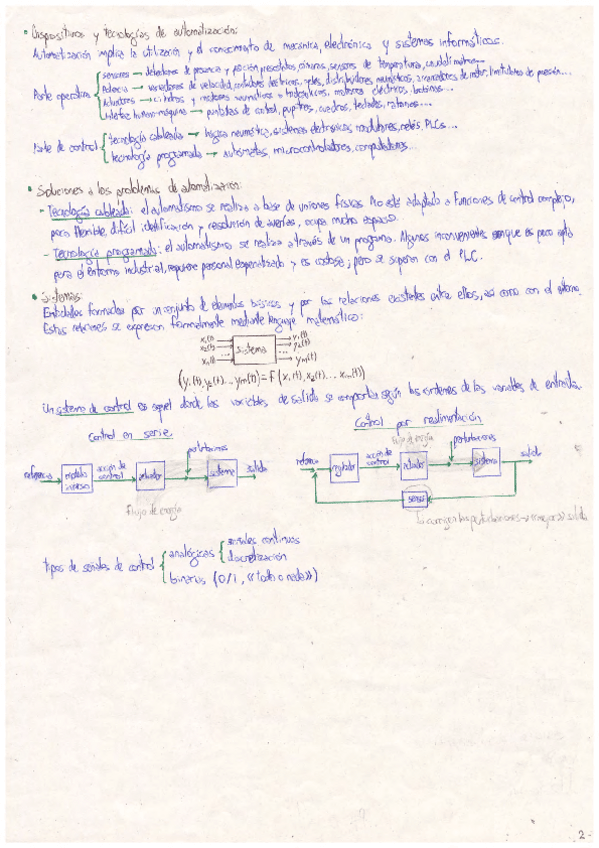 • Dispositivos y tecnologías de automatización:
Automatización implica la utilización y el conocimiento de mecánica, electrónica y sistemas informáticos.
Parte operativa
sensores → detectores de presencia y posición, presostatos, cámaras, sensores de temperatura, caudalímetros...
Potencia → variadores de velocidad, contadores eléctricos, relés, distribuidores neumáticos, arrancadores de motor, limitadores de presión...
Actuadores → cilindros y motores neumáticos o hidráulicos, motores eléctricos, bobinas...
Interfaz humano-máquina → pantallas de control, pupitres, cuadros, teclados, ratones...
Parte de control
tecnología cableada → lógica neumática, sistemas electrónicos modulares, relés, PLCs...
tecnología programada → autómatas, microcontroladores, computadores...
• Soluciones a los problemas de automatización:
- Tecnología cableada: el automatismo se realiza a base de uniones físicas. No está adaptado a funciones de control complejo,
poco flexible, difícil identificación y resolución de averías, ocupa mucho espacio.
- Tecnología programada: el automatismo se realiza a través de un programa. Algunos inconvenientes son que es poco apta
para el entorno industrial, requiere personal especializado y es costosa; pero se superan con el PLC.
• Sistemas:
Entidades formadas por un conjunto de elementos básicos y por las relaciones existentes entre ellos, así como con el entorno.
Estas relaciones se expresan formalmente mediante lenguaje matemático:
x₁(t) y₁(t)
x₂(t) sistema y₂(t)
... ...
xₙ(t) yₘ(t)
(y₁(t), y₂(t)... yₘ(t)) = F (x₁(t), x₂(t)... xₙ(t))
Un sistema de control es aquel donde las variables de salida se comportan según las órdenes de las variables de entrada.
Control en serie.
Control por realimentación
flujo de energía
perturbaciones
perturbaciones
referencia modelo inverso acción de control actuador sistema salida
referencia regulador acción de control actuador sistema salida
sensor
flujo de energía
tipos de señales de control
analógicas
señales continuas
discretización
binarias (0/1, «todo o nada»)
2